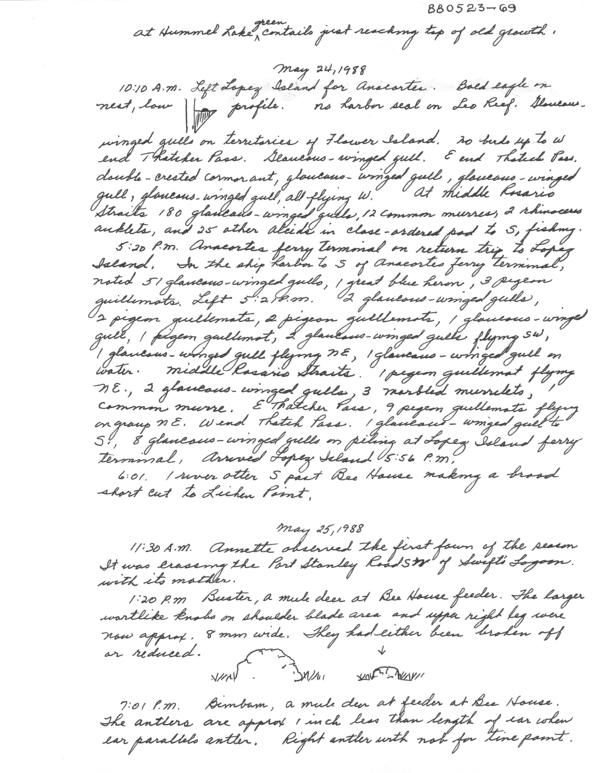 880523-69
at Hummel Lake green contails just reaching top of old growth.
May 24, 1988
10:10 A.M. Left Lopez Island for Anacortes. Bald eagle on
nest, low profile. no harbor seal on Leo Reef. Glaucous-
winged gulls on territories of Flower Island. no birds up to W
end Thatcher Pass. Glaucous-winged gull. E end Thatch Pass.
double-crested cormorant, glaucous-winged gull, glaucous-winged
gull, glaucous-winged gull, all flying W. At middle Rosario
Straits 180 glaucous-winged gulls, 12 common murres, 2 rhinoceros
auklets, and 25 other alcids in close-ordered pod to S, fishing.
5:20 P.M. Anacortes ferry terminal on return trip to Lopez
Island. In the ship harbor to S of Anacortes ferry terminal,
noted 51 glaucous-winged gulls, 1 great blue heron, 3 pigeon
guillemots. Left 5:2 P.m. 2 glaucous-winged gulls,
2 pigeon guillemots, 2 pigeon guillemots, 1 glaucous-winged
gull, 1 pigeon guillemot, 2 glaucous-winged gulls flying SW,
1 glaucous-winged gull flying NE, 1 glaucous-winged gull on
water. Middle Rosario Straits. 1 pigeon guillemot flying
NE., 2 glaucous-winged gulls, 3 marbled murrelets, 1
common murre. E Thatcher Pass, 9 pigeon guillemots flying
in group NE. W end Thatch Pass. 1 glaucous-winged gull to
S., 8 glaucous-winged gulls on piling at Lopez Island ferry
terminal, Arrived Lopez Island 5:56 P.M.
6:01. 1 river otter S past Bee House making a broad
short cut to Lichen Point.
May 25, 1988
11:30 A.M. Annette observed the first fawn of the season
It was crossing the Port Stanley Road SW of Swift's Lagoon.
with its mother.
1:20 P.M Buster, a mule deer at Bee House feeder. The larger
wartlike knobs on shoulder blade area and upper right leg were
now approx. 8 mm wide. They had either been broken off
or reduced.
7:01 P.M. Bimbam, a mule deer at feeder at Bee House.
The antlers are approx 1 inch less than length of ear when
ear parallels antler. Right antler with nob for tine point.